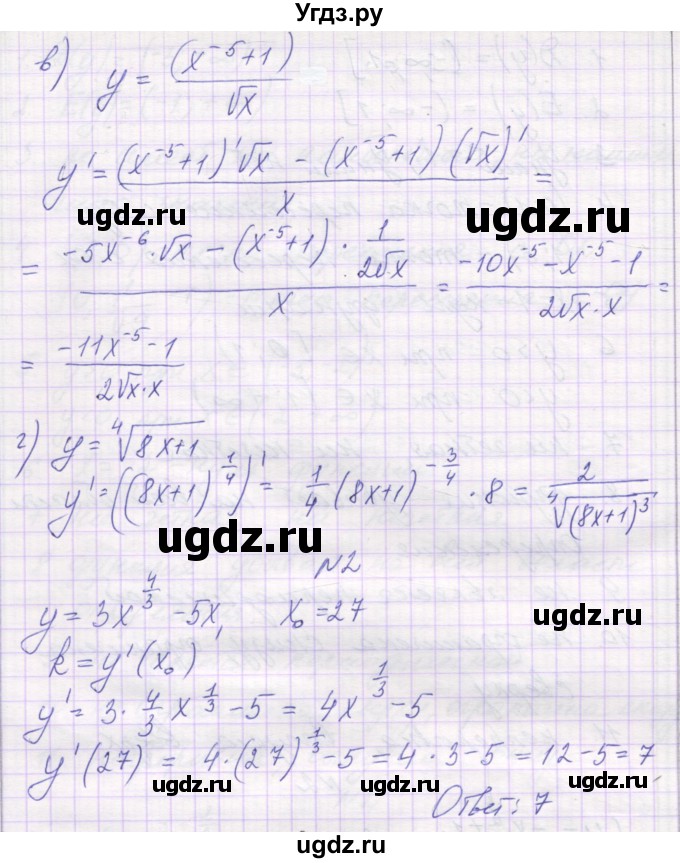 Угдз.ру
в) y = (x⁻⁵+1)/√x
y' = ((x⁻⁵+1)'√x − (x⁻⁵+1)(√x)')/x =
ugdz.ru ugdz.ru
= (−5x⁻⁶·√x − (x⁻⁵+1)·1/(2√x))/x = (−10x⁻⁵−x⁻⁵−1)/(2√x·x) =
ugdz.ru ugdz.ru
= (−11x⁻⁵−1)/(2√x·x)
ugdz.ru
г) y = ⁴√(8x+1)
y' = ((8x+1)^(1/4))' = 1/4 (8x+1)^(−3/4) · 8 = 2/⁴√((8x+1)³)
ugdz.ru ugdz.ru
N2
y = 3x^(4/3) − 5x, x₀ = 27
ugdz.ru
k = y'(x₀)
ugdz.ru
y' = 3·4/3 x^(1/3) − 5 = 4x^(1/3) − 5
y'(27) = 4·(27)^(1/3) − 5 = 4·3−5 = 12−5 = 7
ugdz.ru ugdz.ru
Ответ: 7
ugdz.ru
ugdz.ru